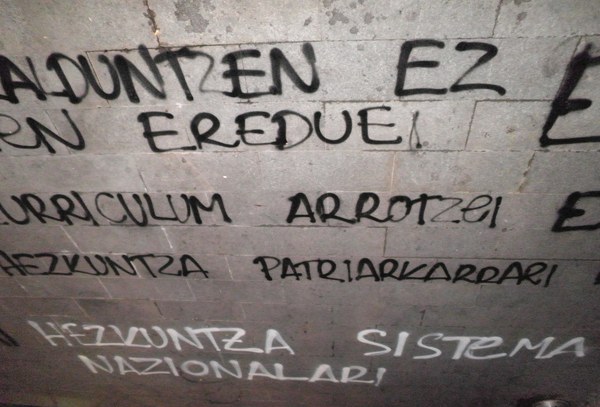 ALDUNTZEN EZ
EREDUEI
CURRICULUM ARROTZEI
HEZKUNTZA PATRIARKARRARI
HEZKUNTZA SISTEMA
NAZIONALARI